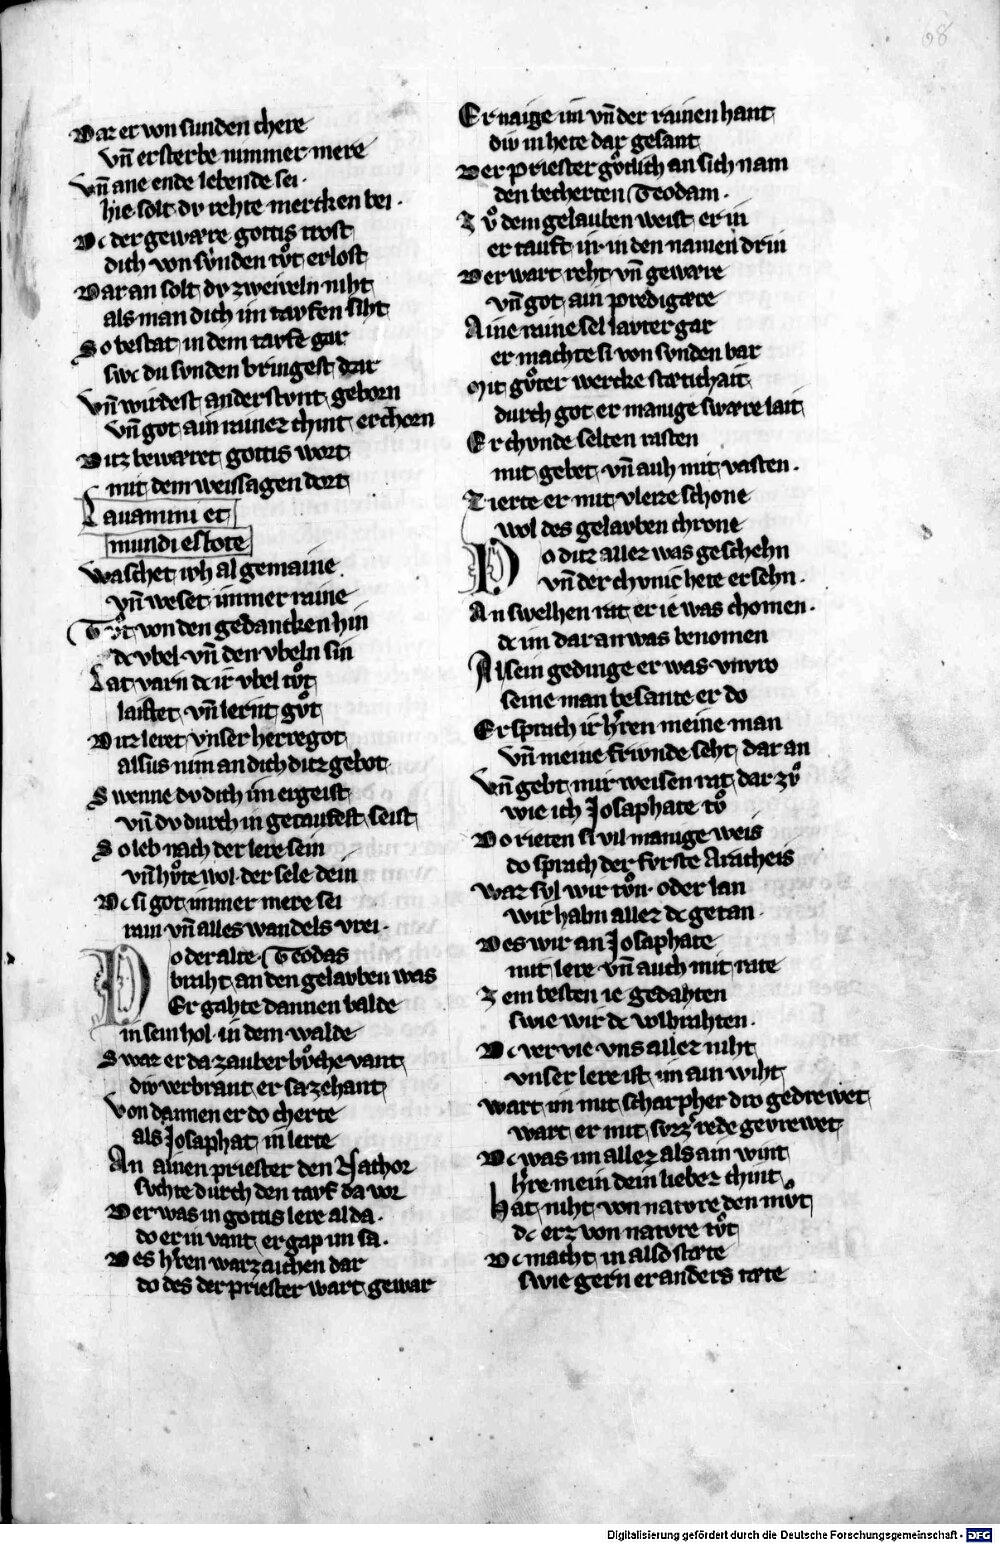 68
Daz er von sunden chere
vn̄ ersterbe nimmer mere
vn̄ ane ende lebende sei ·
hie solt dv rehte mercken bei ·
Dc der gewære gottis trost
dich von svnden tvͦt erlost
Dar an solt dv zweiveln niht
als man dich im tavfen siht
So bestat in dem tavfe gar
swc du svnden bringest dar
vn̄ wirdest anderstvnt geborn
vn̄ got ain rainez chint erchorn
Ditz bewæret gottis wort
mit dem weissagen dort
Lavamini et
mundi estote
waschet ivh al gemaine
vn̄ weset immer raine
Tvͦt von den gedancken hin
dc vbel vn̄ den vbeln sin
Lat varn dc ir vbel tvͦt
laistet vn̄ lernt gvͦt
Ditz leret vnser herre got
alsus nim an dich ditz gebot
Swenne dv dich im ergeist
vn̄ dv durch in getaufest seist
So leb nach der lere sein
vn̄ hvͦte wol der sele dein
Dc si got immer mere sei
rain vn̄ alles wandels vrei ·
Do der alte Teodas
braht an den gelavben was
Er gahte dannen balde
in sein hol in dem walde
Swaz er da zauber bvͦche vant
div verbrant er sa zehant
von dannen er do cherte
als Josaphat in lerte
An ainen priester den Nachor
svchte durch den tavf da vor
Der was in gottis lere al da ·
do er in vant er gap im sa ·
Des hr̄en warzaichen dar
do des der priester wart gewar
Er naige im vn̄ der rainen hant
div in hete dar gesant
Der priester gvͦtlich an sich nam
den becherten Teodam ·
Zvͦ dem gelauben weist er in
er tauft in in den namen drin
Der wart reht vn̄ gewære
vn̄ got ain predigære
Aine raine sel lavter gar
er machte si von svnden bar
Mit gvͦter wercke stætichait
durch got er manige swære lait
Er chvnde selten rasten
mit gebet vn̄ auh mit vasten ·
Zierte er mit vleize schone
wol des gelavben chrone
Do ditz allez was geschehn
vn̄ der chvnic hete ersehn ·
An swelhen rat er ie was chomen ·
dc im dar an was benomen
Al sein gedinge er was vnvro
seine man besante er do
Er sprach ir hr̄en meine man
vn̄ meine frivnde seht dar an
vn̄ gebt mir weisen rat dar zvͦ
wie ich Josaphate tvͦ
Do rieten si vil manige weis
do sprach der fvrste Aracheis
waz svl wir tvͦn oder lan
wir habn allez dc getan ·
Des wir an Josaphate
mit lere vn̄ auch mit rate
Zem besten ie gedahten
swie wir dc volbrahten ·
Dc vervie vns allez niht
vnser lere ist im ain wiht
wart im mit scharpher dro gedrewet
wart er mit svrz rede gevrewet
Dc was im allez als ain wint
hr̄re mein dein lieber chint
hat niht von natvre den mvͦt
dc erz von natvre tvͦt
Dc macht in also stæte
swie gern er anders tæte
Digitalisierung gefördert durch die Deutsche Forschungsgemeinschaft - DFG